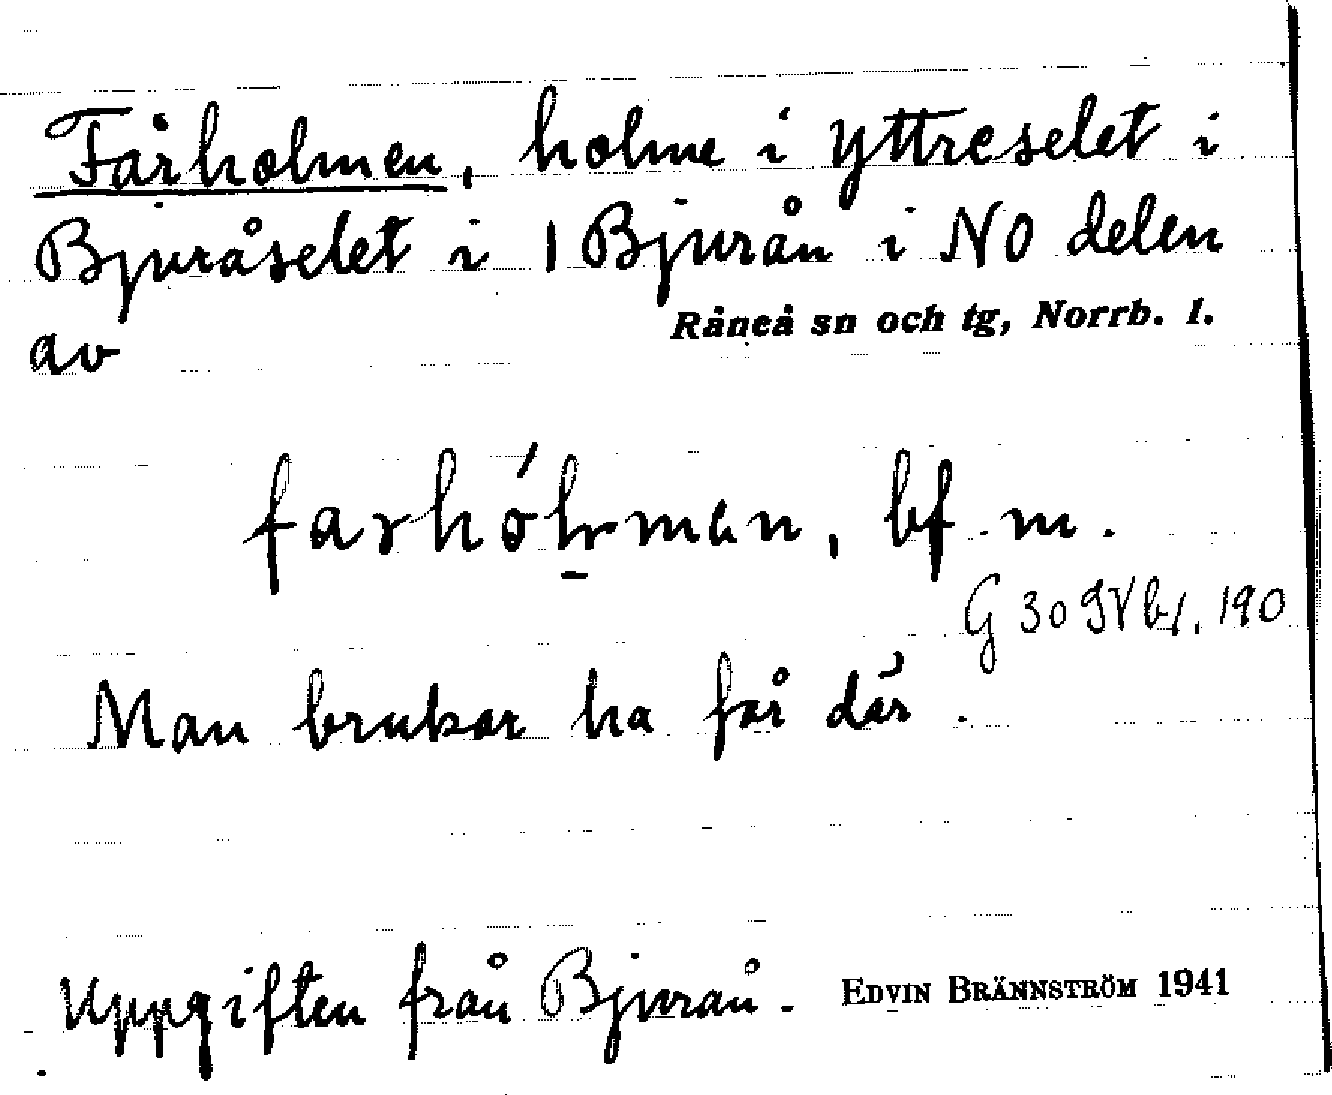 Fårholmen, holme i Yttreselet i
Bjuråselet i 1 Bjurån i NO delen
av Råneå sn och tg, Norrb. l.
farhólman, bf. m.
G 30 190
Man brukar ha får där.
Uppgiften från Bjurån. EDVIN BRÄNNSTRÖM 1941